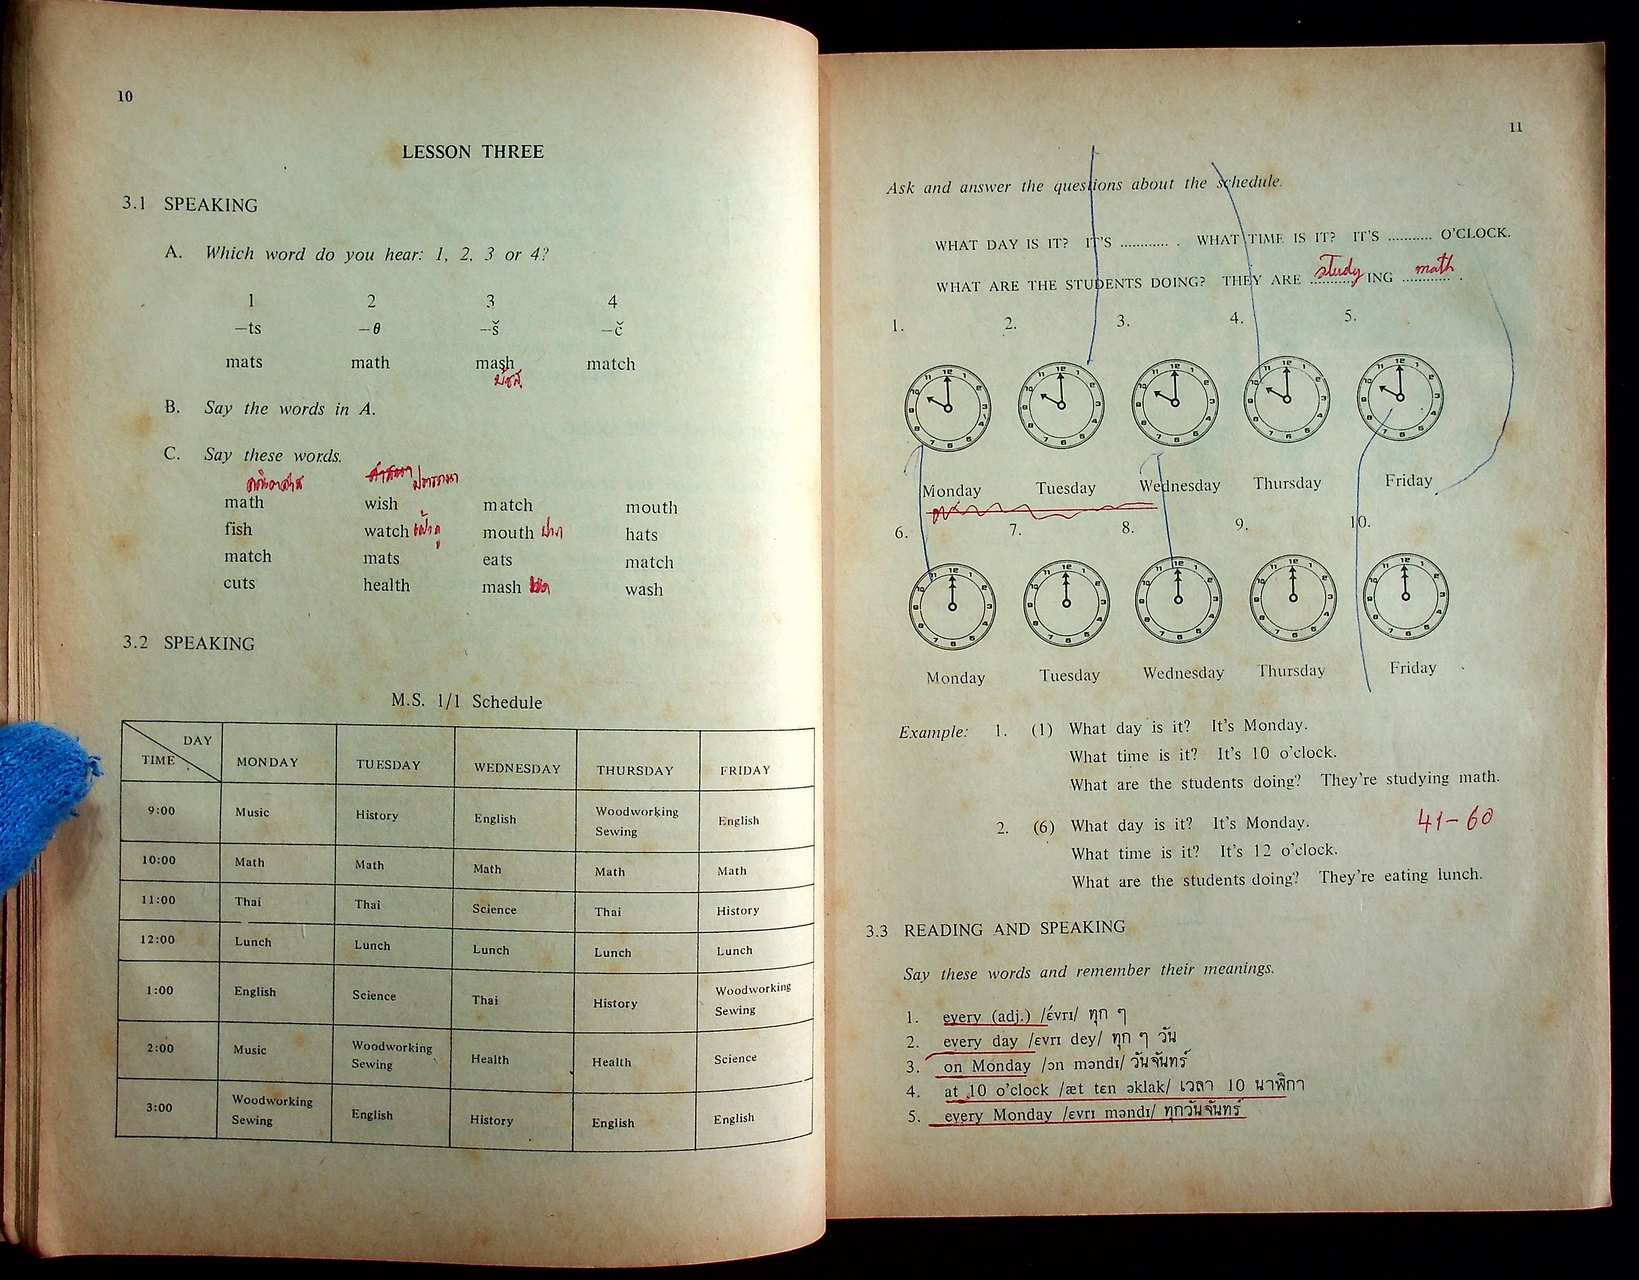 10
LESSON THREE
3.1 SPEAKING
A. Which word do you hear: 1, 2, 3 or 4?
1 2 3 4
—ts —θ —š —č
mats math mash match
B. Say the words in A.
C. Say these words.
math wish match mouth
fish watch mouth ปาก hats
match mats eats match
cuts health mash wash
3.2 SPEAKING
M.S. 1/1 Schedule
DAY
TIME MONDAY TUESDAY WEDNESDAY THURSDAY FRIDAY
9:00 Music History English Woodworking Sewing English
10:00 Math Math Math Math Math
11:00 Thai Thai Science Thai History
12:00 Lunch Lunch Lunch Lunch Lunch
1:00 English Science Thai History Woodworking Sewing
2:00 Music Woodworking Sewing Health Health Science
3:00 Woodworking Sewing English History English English
11
Ask and answer the questions about the schedule.
WHAT DAY IS IT? IT'S ............ . WHAT TIME IS IT? IT'S ........... O'CLOCK.
WHAT ARE THE STUDENTS DOING? THEY ARE study ING math .
1. 2. 3. 4. 5.
Monday Tuesday Wednesday Thursday Friday
6. 7. 8. 9. 10.
Monday Tuesday Wednesday Thursday Friday
Example: 1. (1) What day is it? It's Monday.
What time is it? It's 10 o'clock.
What are the students doing? They're studying math.
2. (6) What day is it? It's Monday. 41-60
What time is it? It's 12 o'clock.
What are the students doing? They're eating lunch.
3.3 READING AND SPEAKING
Say these words and remember their meanings.
1. every (adj.) /ɛ́vrɪ/ ทุก ๆ
2. every day /ɛvrɪ dey/ ทุก ๆ วัน
3. on Monday /ɔn məndɪ/ วันจันทร์
4. at 10 o'clock /æt tɛn əklak/ เวลา 10 นาฬิกา
5. every Monday /ɛvrɪ məndɪ/ ทุกวันจันทร์